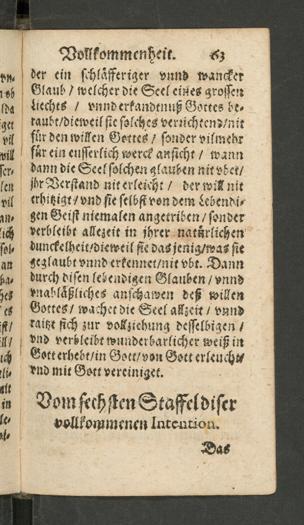 Vollkommenheit. 63
der ein schläfferiger vnnd wancker
Glaub / welcher die Seel eines grossen
Liechts / vnnd erkandtnuß Gottes be-
raubt / dieweil sie solches verrichten / nit
für den willen Gottes / sonder vilmehr
für ein eusserlich werck ansicht / wann
dann die Seel solchen glauben nit vbet /
jhr Verstand nit erleicht / der will nit
erhitzigt / vnd sie selbst von dem Lebendi-
gen Geist niemalen angetriben / sonder
verbleibt allezeit in jhrer natürlichen
dunckelheit / dieweil sie das jenig / was sie
geglaubt vnnd erkennet / nit vbt. Dann
durch disen lebendigen Glauben / vnnd
vnabläßliches anschawen deß willen
Gottes / wachet die Seel allzeit / vnnd
raitzt sich zur vollziehung desselbigen /
vnd verbleibt wunderbarlicher weiß in
Gott erhebt / in Gott / von Gott erleucht /
vnd mit Gott vereiniget.
Vom sechsten Staffel diser
vollkommenen Intention.
Das